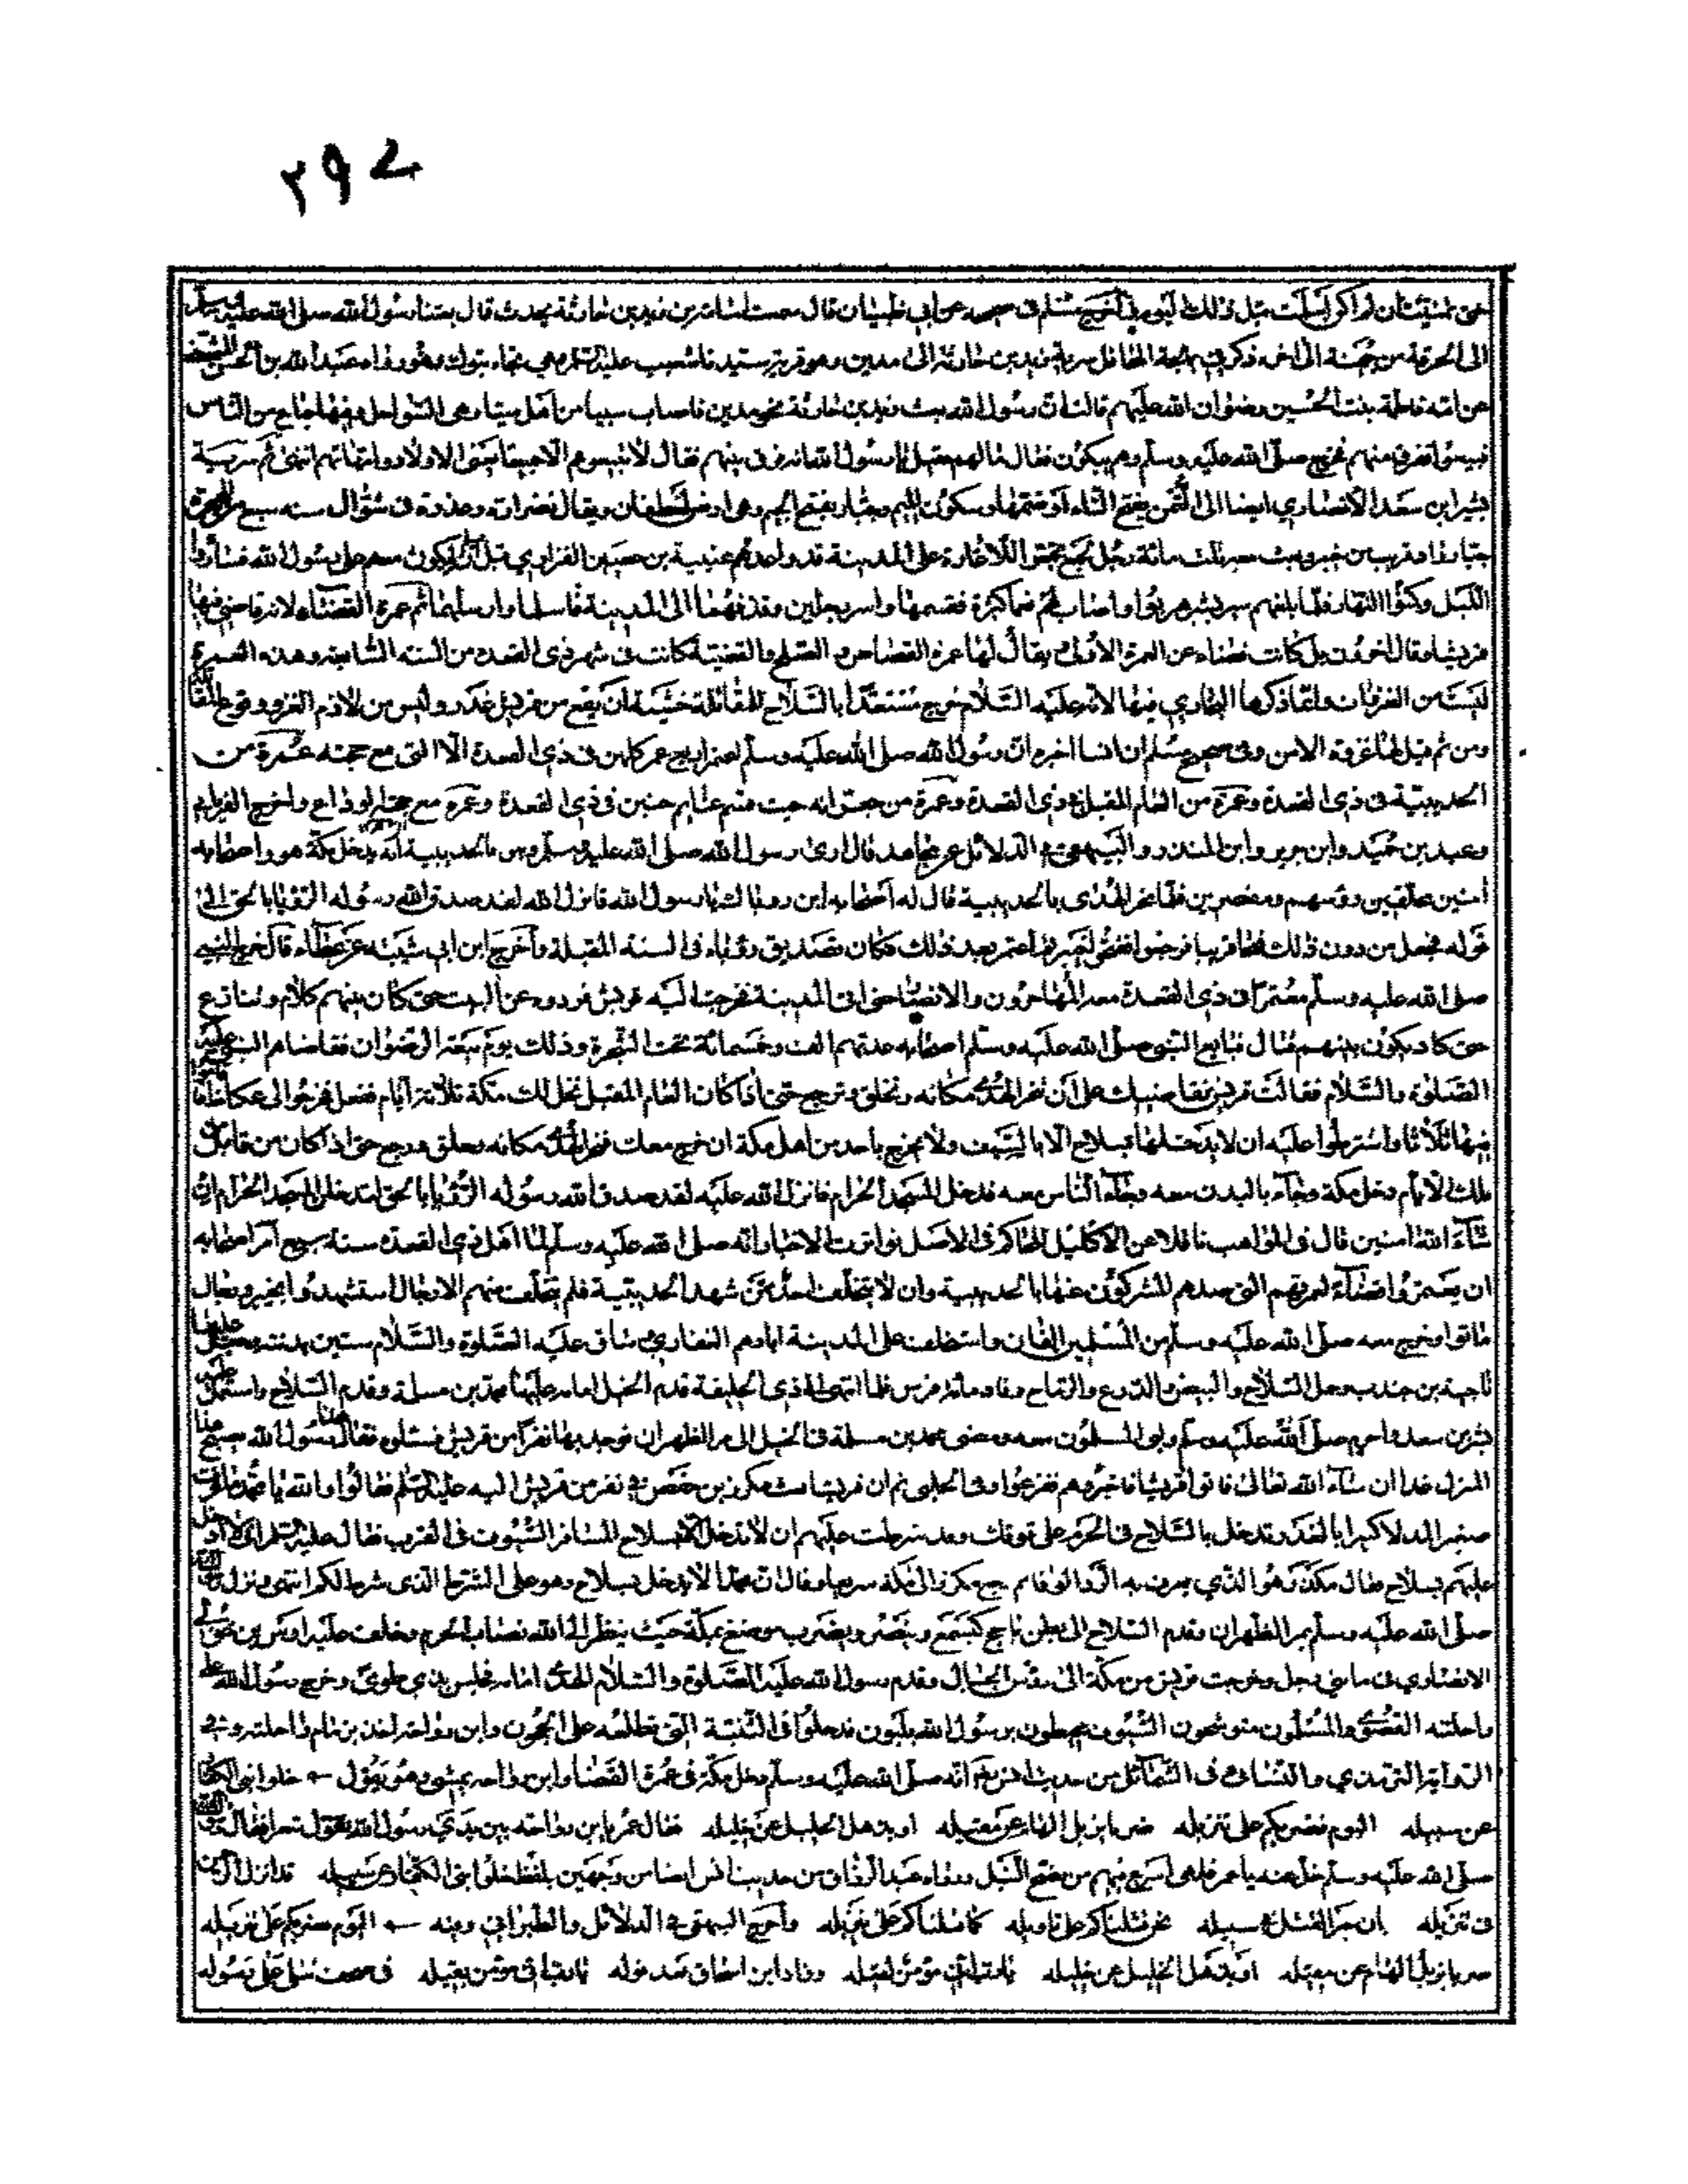 ٢٩٧
حتى تمنيت ان لم اكن اسلمت قبل ذلك اليوم اخرج مسلم في عن ابي ظبيان قال سمعت اسامة بن زيد بن حارثة يحدث قال بعثنا رسول الله صلى الله عليه وسلم
الى الحرقة من جهينة الى اخره ذكر في بهجة المحافل سرية زيد بن حارثة الى مدين وهو قرية سيدنا شعيب عليه السلام هي تجاه تبوك وهو رواه عبد الله بن الحسن
عن امه فاطمة بنت الحسين رضوان الله عليهم قالت ان رسول الله بعث زيد بن حارثة نحو مدين فاصاب سبيا من اهل مينا وهي السواحل وفيها جماع من الناس
فبيعوا ففرق بينهم فخرج صلى الله عليه وسلم وهم يبكون فقال ما لهم فقيل يا رسول الله فرق بينهم فقال لا تبيعوهم الا جميعا يعنى الاولاد وامهاتهم انتهى ثم سرية
بشير ابن سعد الانصاري ايضا الى اليمن بفتح الياء او ضمها وسكون الميم وجبار بفتح الجيم وهى ارض لغطفان ويقال لفزارة وعذرة فى شوال سنه سبع من الهجرة
وبعث معه ثلث مائة رجل لجمع تجمعوا للاغارة على المدينة قد واعدهم عيينة بن حصين الفزاري قبل ان يكون معهم على رسول الله فساروا
الليل وكمنوا النهار فلما بلغهم سير بشير هربوا واصاب لهم نعما كثيرة فقسمها واسر رجلين وقدم بهما الى المدينة فاسلما وارسلهما ثم عمرة القضاء لانه قاضى فيها
قريشا وقال اخرون بل كانت قضاء عن العمرة الاولى ويقال لها عمرة القصاص والصلح والقضية كانت فى شهر ذى القعدة من السنه السابعة وهذه العمرة
ليست من الغزوات وانما ذكرها البخاري فيها لانه عليه السلام خرج مستعدا بالسلاح للمقاتلة خشية ان يقع من قريش غدر وليس من لازم الغزو وقوع المقاتلة
ومن ثم قيل لها غزوة الامن وفى صحيح مسلم ان انسا اخبره ان رسول الله صلى الله عليه وسلم اعتمر اربع عمر كلهن فى ذي القعدة الا التى مع حجته عمرة من
الحديبية فى ذي القعدة وعمرة من العام المقبل في ذي القعدة وعمرة من جعرانه حيث قسم غنايم حنين فى ذي القعدة وعمرة مع حجة الوداع واخرج الفريابي
وعبد بن حميد وابن جرير وابن المنذر والبيهقى في الدلائل عن مجاهد قال ارى رسول الله صلى الله عليه وسلم وهو بالحديبية انه يدخل مكة هو واصحابه
امنين محلقين رؤسهم ومقصرين فلما نحر الهدى بالحديبية قال له اصحابه اين روياك يا رسول الله فانزل الله لقد صدق الله رسوله الرؤيا بالحق الى
قوله فجعل من دون ذلك فتحا قريبا فرجعوا ففتحوا خيبر ثم اعتمر بعد ذلك فكان تصديق رؤياه فى السنة المقبلة واخرج ابن ابي شيبة عن عطاء قال خرج النبي
صلى الله عليه وسلم معتمرا فى ذي القعدة معه المهاجرون والانصار حتى اتى المدينة فخرجت اليه قريش فردوه عن البيت حتى كان بينهم كلام وتنازع
حتى كاد يكون بينهم قتال فبايع النبى صلى الله عليه وسلم اصحابه عدتهم الف وخمسمائة تحت الشجرة وذلك يوم بيعة الرضوان فقاضاهم النبي عليه
الصلوة والسلام فقالت قريش نقاضيك على ان تنحر الهدى مكانه وتحلق وترجع حتى اذا كان العام المقبل نخلى لك مكة ثلاثة ايام ففعل فخرجوا الى عكاظ
فيها ثلاثا واشترطوا عليه ان لا يدخلها بسلاح الا بالسيف ولا يخرج باحد من اهل مكة ان خرج معك فنحر الهدى مكانه وحلق ورجع حتى اذا كان من قابل
تلك الايام دخل مكة وجاء بالبدن معه وجاء الناس معه فدخل المسجد الحرام فانزل الله عليه لقد صدق الله رسوله الرؤيا بالحق لتدخلن المسجد الحرام ان
شاء الله امنين قال فى المواهب ناقلا عن الاكليل للحاكم فى الاصل تواترت الاخبار انه صلى الله عليه وسلم لما اهل ذي القعدة سنة سبع امر اصحابه
ان يعتمروا قضاء لعمرتهم التى صدهم المشركون عنها بالحديبية وان لا يتخلف احد ممن شهد الحديبية فلم يتخلف منهم الا رجال استشهدوا بخيبر ورجال
ماتوا وخرج معه صلى الله عليه وسلم من المسلمين الفان واستخلف على المدينة ابا رهم الغفاري وساق عليه الصلوة والسلام ستين بدنة وجعل عليها
ناجية بن جندب وحمل السلاح والبيض والدروع والرماح وقاد مائة فرس فلما انتهى الى ذي الحليفة قدم الخيل امامه عليها محمد بن مسلمة وقدم السلاح واستعمل عليه
بشير بن سعد واحرم صلى الله عليه وسلم ولبى المسلمون معه ومضى محمد بن مسلمة فى الخيل الى مر الظهران فوجد بها نفرا من قريش فسئلوه فقال هذا رسول الله يصبح هذا
المنزل غدا ان شاء الله تعالى فاتوا قريشا فاخبروهم ففزعوا وفى الحلبى ثم ان قريشا بعث مكرز بن حفص في نفر من قريش اليه عليه السلام فقالوا والله يا محمد ما عرفت
صغيرا ولا كبيرا بالغدر تدخل بالسلاح فى الحرم على قومك وقد شرطت عليهم ان لا تدخل الا بسلاح المسافر السيوف فى القرب فقال عليه السلام انى لا ادخل
عليهم بسلاح فقال مكرز هو الذي يعرف به البر والوفا ثم رجع مكرز الى مكة سريعا وقال ان محمدا لا يدخل بسلاح وهو على الشرط الذى شرط لكم انتهى ونزل
صلى الله عليه وسلم بمر الظهران وقدم السلاح الى بطن ياجج كيسمع وينصر ويضرب موضع بمكة حيث ينظر الى انصاب الحرم وخلف عليه اوس بن خولي
الانصاري فى مائتى رجل وخرجت قريش من مكة الى رؤس الجبال وقدم رسول الله عليه الصلوة والسلام الهدى امامه فحبس بذي طوى وخرج رسول الله على
راحلته القصوى والمسلمون متوشحون السيوف محيطون برسول الله يلبون فدخلوا فى الثنية التى تطلعه على الحجون وابن رواحة اخذ بزمام راحلته وفي
الرواية الترمذي والنسائى فى الشمائل من حديث انس انه صلى الله عليه وسلم دخل مكة فى عمرة القضا وابن رواحه يمشى وهو يقول خلوا بنى الكفار
عن سبيله اليوم نضربكم على تنزيله ضربا يزيل الهام عن مقيله او يذهل الخليل عن خليله فقال عمر يابن رواحه بين يدي رسول الله تقول شعرا فقال
صلى الله عليه وسلم خل عنه يا عمر فلهى اسرع فيهم من نضح النبل ورواه عبد الرزاق من حديث انس ايضا من وجهين بلفظ خلوا بنى الكفار عن سبيله قد انزل الرحمن
فى تنزيله بان خير القتل في سبيله نحن قتلناكم على تاويله كما قتلناكم على تنزيله واخرج البيهقى في الدلائل والطبرانى وفيه اليوم نضربكم على تنزيله
ضربا يزيل الهام عن مقيله او يذهل الخليل عن خليله يارب انى مؤمن بقيله وزاد ابن اسحاق بعد قوله يارب انى مؤمن بقيله فى صحف تتلى على رسوله